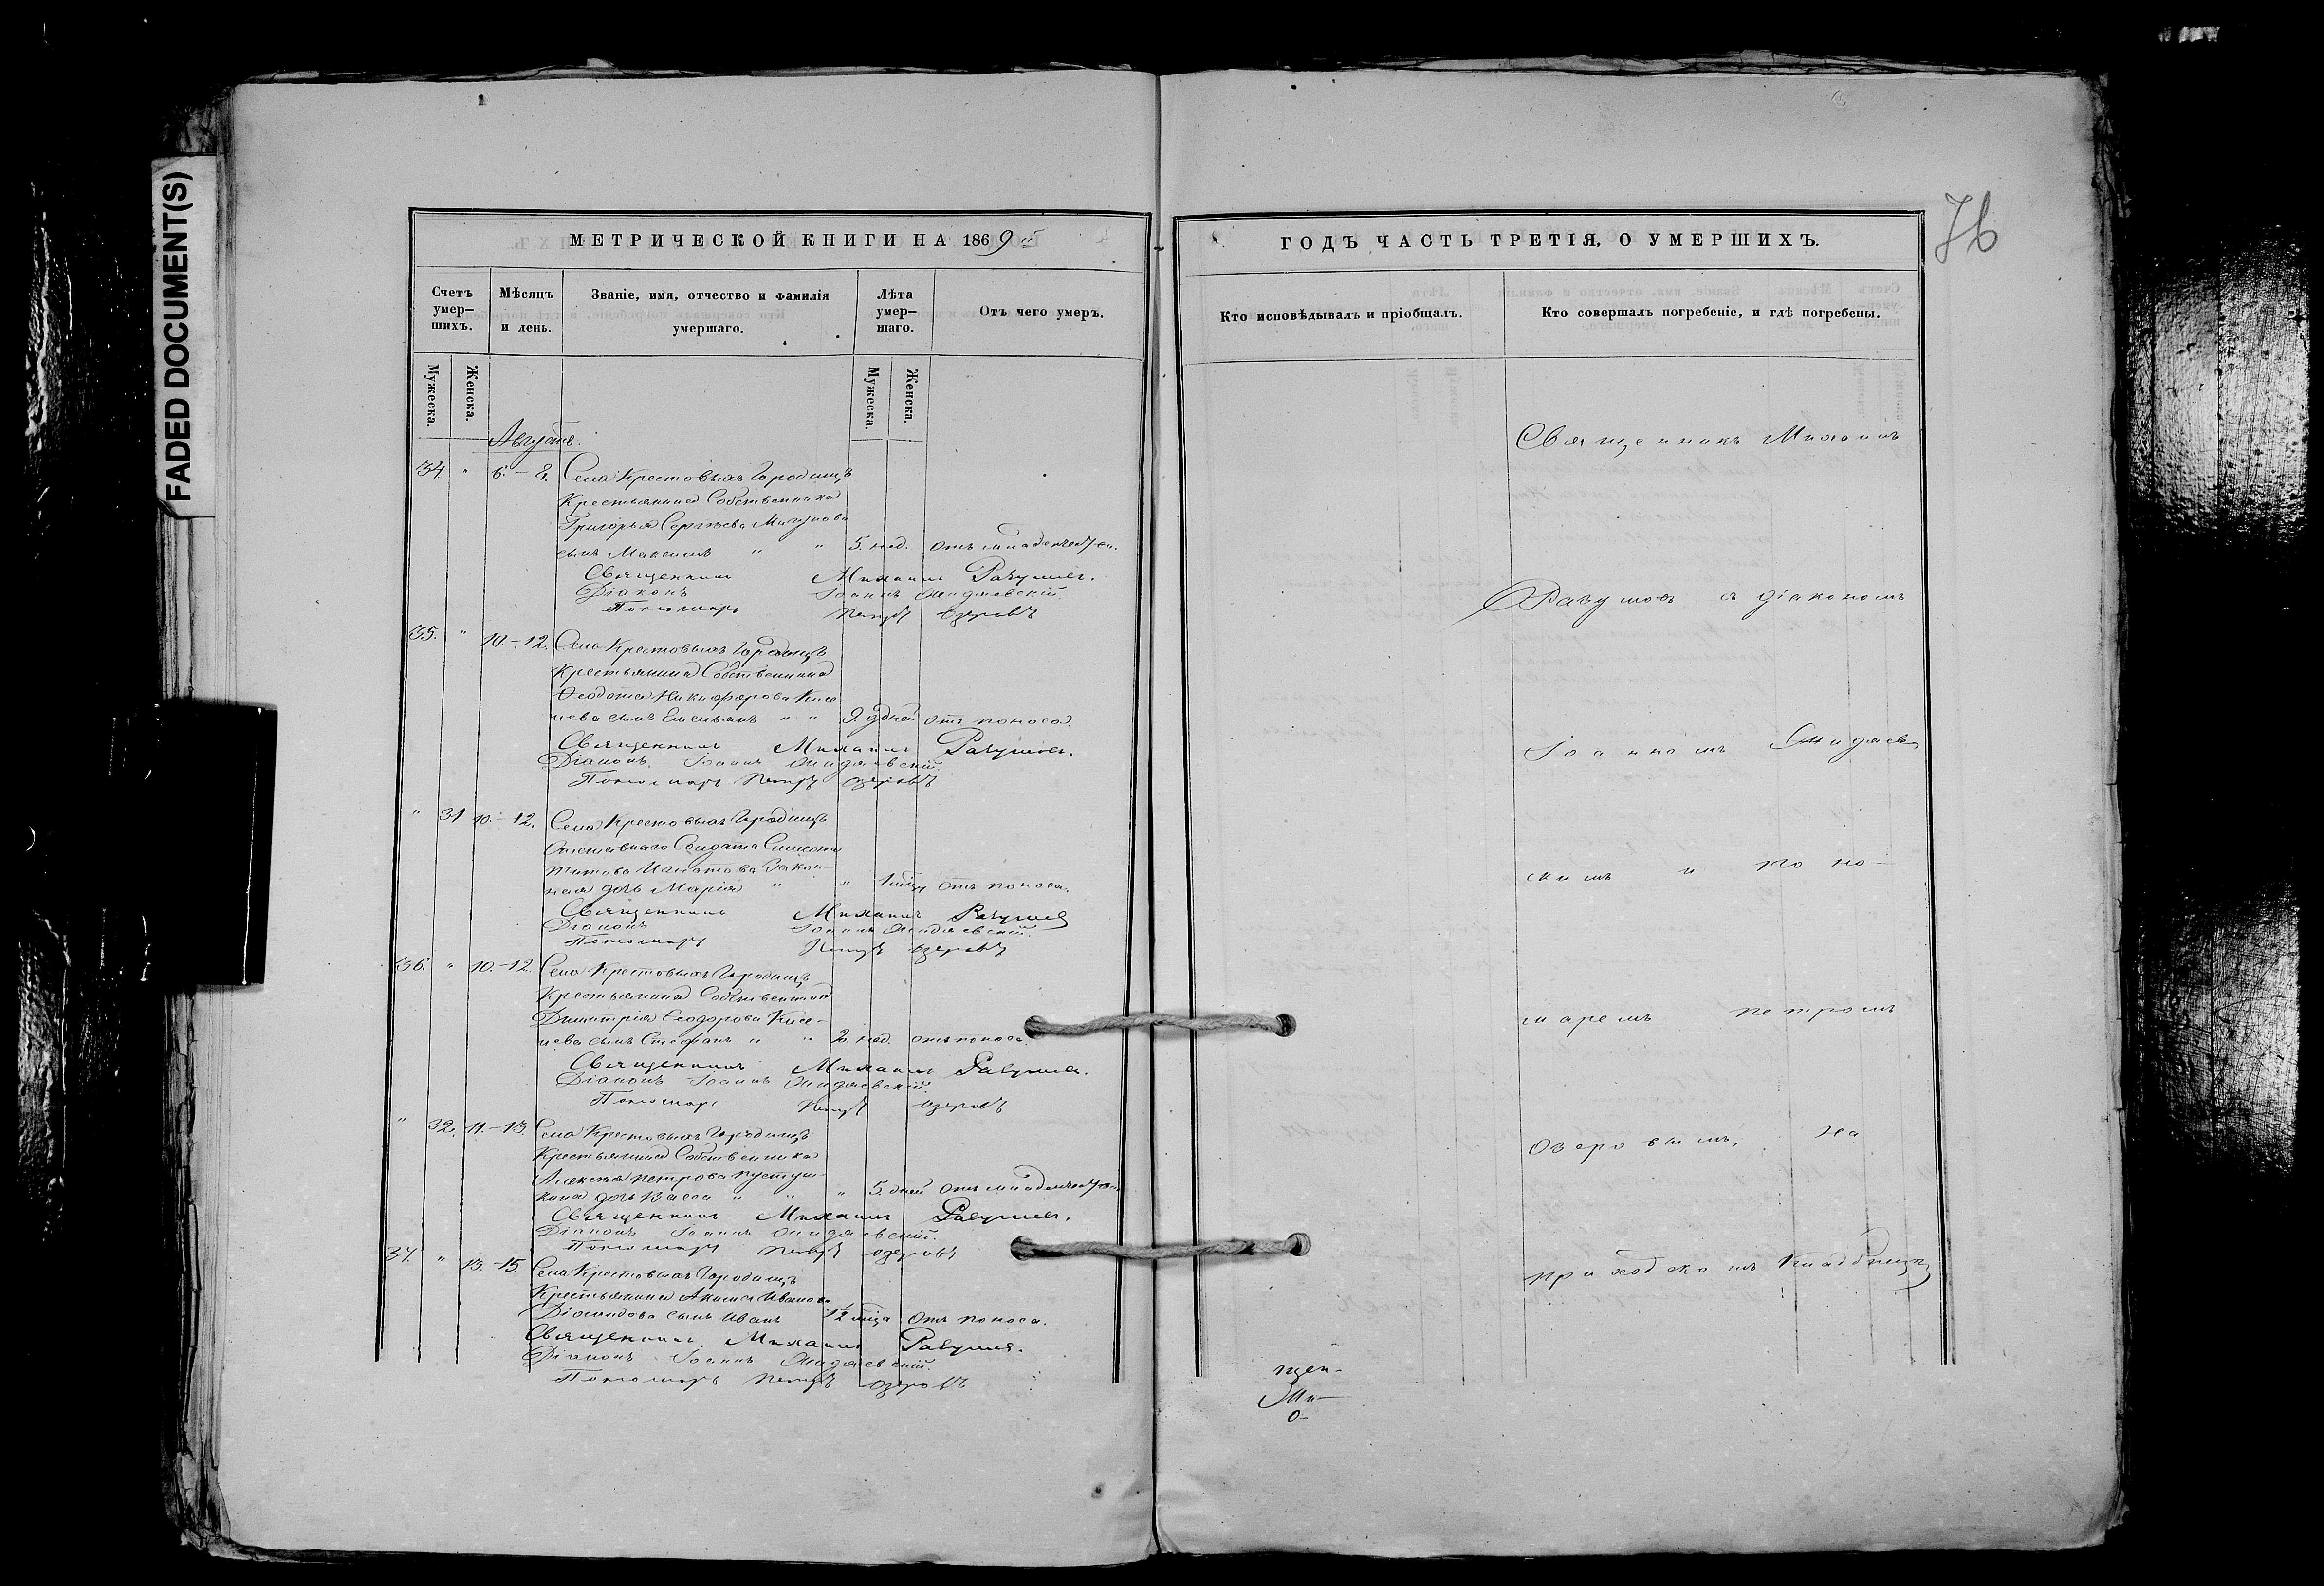 FADED DOCUMENT(S)
МЕТРИЧЕСКОЙ КНИГИ НА 1869 й
Счетъ умер-шихъ.
Мѣсяцъ и день.
Званіе, имя, отчество и фамилія умершаго.
Лѣта умер-шаго.
Отъ чего умеръ.
Мужеска.
Женска.
Мужеска.
Женска.
Августъ.
34. " 6.-8. Села Крестовыхъ Городищъ
Крестьянина Собственника
Григорья Сергѣева
сынъ Максимъ " " 5. нед. отъ младенческ.
Священникъ Михаилъ Разумовъ.
Діаконъ Іоаннъ
Пономарь Петръ Озеровъ
35. " 10.-12. Села Крестовыхъ Городищъ
Крестьянина Собственника
Ѳеодота Никифорова Кисе-
лева сынъ Емельянъ " " 9. дней отъ поноса.
Священникъ Михаилъ Разумовъ.
Діаконъ Іоаннъ
Пономарь Петръ Озеровъ
" 31 10.-12. Села Крестовыхъ Городищъ
Отставнаго Солдата Симеона
Титова Игнатова Закон-
ная дочь Марія " " отъ поноса.
Священникъ Михаилъ Разумовъ
Діаконъ Іоаннъ
Пономарь Петръ Озеровъ
36. " 10.-12. Села Крестовыхъ Городищъ
Крестьянина Собственника
Димитрія Ѳеодорова Кисе-
лева сынъ Стефанъ " " 2. нед. отъ поноса.
Священникъ Михаилъ Разумовъ.
Діаконъ Іоаннъ
Пономарь Петръ Озеровъ
" 32. 11.-13. Села Крестовыхъ Городищъ
Крестьянина Собственника
Алексѣя Петрова Пустуш-
кина дочь Васса " " " 5. дней отъ младенческ.
Священникъ Михаилъ Разумовъ.
Діаконъ Іоаннъ
Пономарь Петръ Озеровъ
37. " 13.-15. Села Крестовыхъ Городищъ
Крестьянина Акима Иванова
Діомидова сынъ Иванъ отъ поноса.
Священникъ Михаилъ Разумовъ.
Діаконъ Іоаннъ
Пономарь Петръ Озеровъ
76
ГОДЪ ЧАСТЬ ТРЕТІЯ, О УМЕРШИХЪ.
Кто исповѣдывалъ и пріобщалъ.
Кто совершалъ погребеніе, и гдѣ погребены.
Священникъ Михаилъ
Разумовъ съ діакономъ
Іоанномъ
скимъ и поно-
маремъ Петромъ
Озеровымъ, на
приходскомъ кладбищѣ